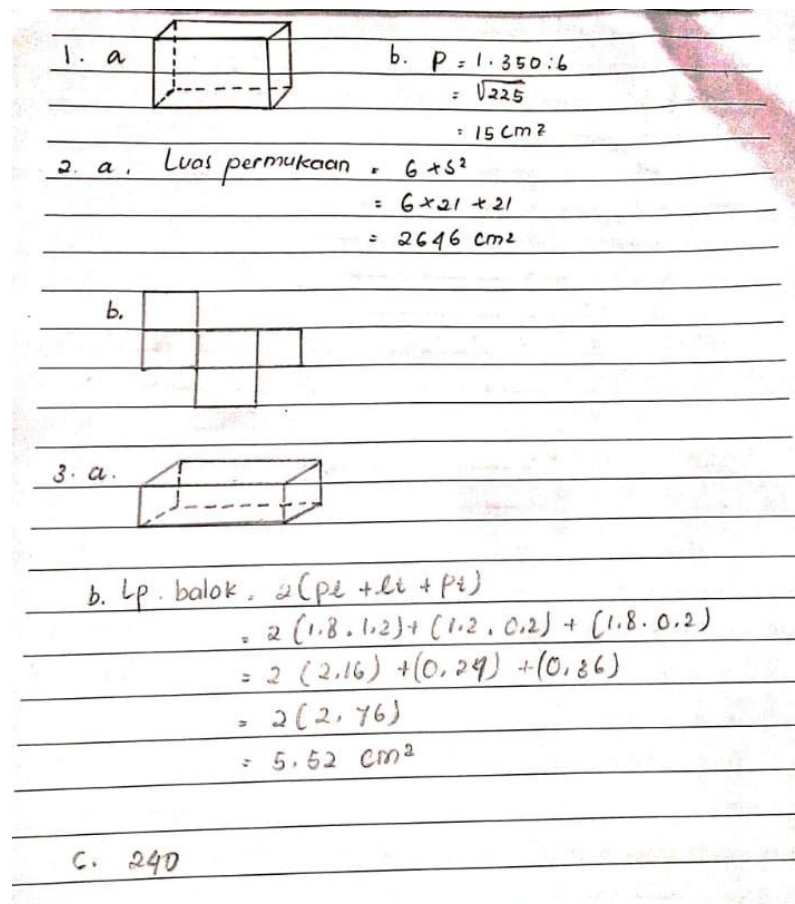 1. a
b. P = 1.350 : 6
= √225
= 15 cm2
2. a. Luas permukaan = 6 × S²
= 6 × 21 × 21
= 2646 cm2
b.
3. a.
b. Lp. balok = 2(pl + lt + Pt)
= 2 (1.8 . 1.2) + (1.2 . 0.2) + (1.8 . 0.2)
= 2 (2.16) + (0,24) + (0,36)
= 2 (2,76)
= 5.52 cm²
C. 240